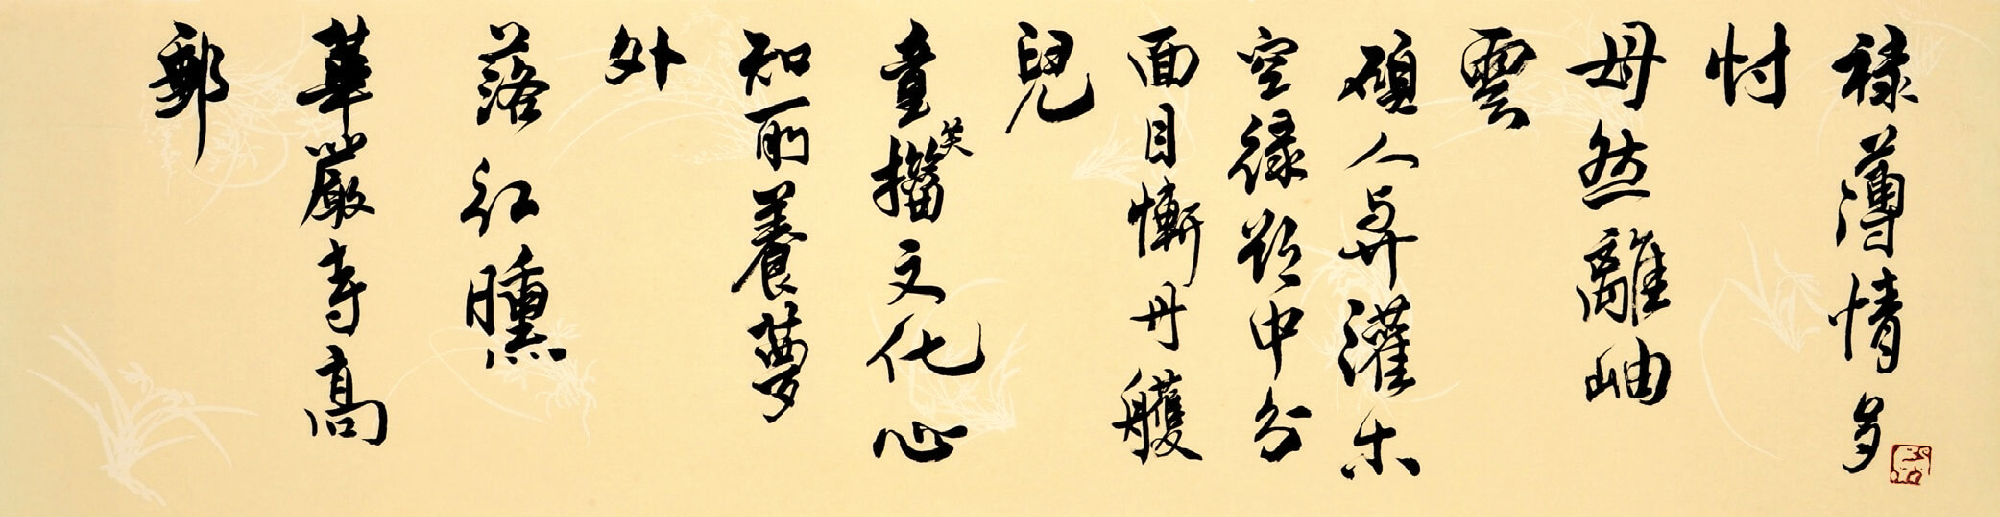 祿薄情多
忖
毋然離岫
雲
碩人弄灌木
空綠龄中分
面目慚丹雘
兒
童笑擂文化心
知丽養夢
外
落紅曛
華嚴寺高
郵